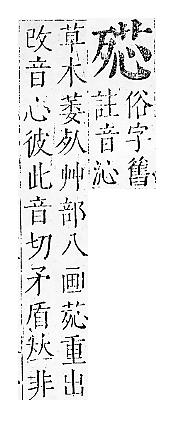 俗字舊
註音沁
草木萎艸部八画重出
改音心彼此音切矛盾夶非